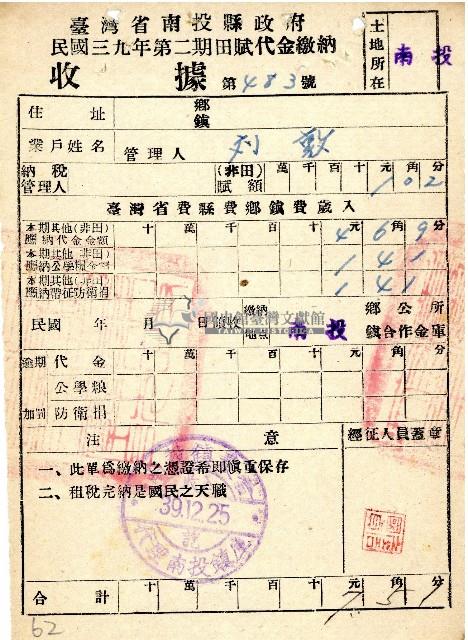 臺灣省南投縣政府
民國三九年第二期田賦代金繳納
收據 第483號
土地所在 南投
住址 鄉鎮
業戶姓名 管理人 劉
納稅管理人 (非田)賦額 萬千百十元角分
1 0 2
臺灣省費縣費鄉鎮費歲入
本期其他(非田)應納代金金額 十萬千百十元角分
4 6 9
本期其他(非田)應納公學糧金額 1 4 1
本期其他(非田)應納帶征防衛捐 1 4 1
民國 年 月 日 領收 繳納地點 南投 鄉鎮公所合作金庫
國史館臺灣文獻館
TAIWAN HISTORICA
逾期加罰 代金 十萬千百十元角分
公學粮
防衛捐
注意 經征人員蓋章
一、此單爲繳納之憑證希即愼重保存
二、租稅完納是國民之天職
39.12.25
合計 十萬千百十元角分
7 5 1
62